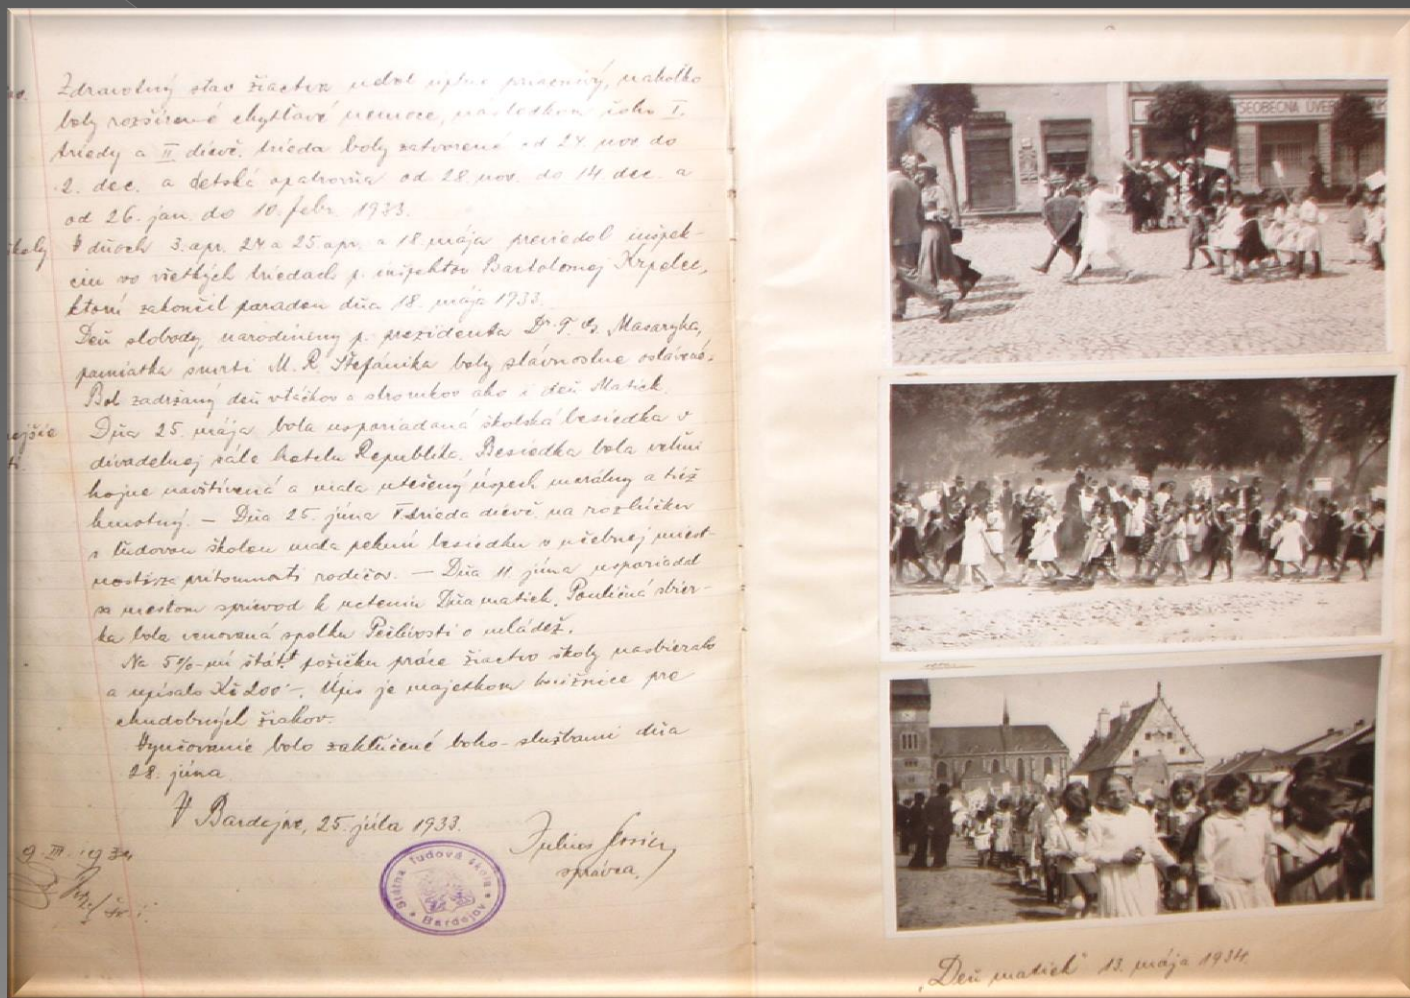 Zdravotný stav žiactva nebol úplne priaznivý, nakoľko
boly rozšírené chytľavé nemoce, následkom čoho I.
triedy a II dievč. trieda boly zatvorené od 24. nov do
2. dec. a detská opatrovňa od 28. nov. do 14. dec. a
od 26. jan. do 10. febr. 1933.
školy
V dňoch 3. apr. 24 a 25 apr. a 18 mája previedol inšpek-
ciu vo všetkých triedach p. inšpektor Bartolomej Krpelec,
ktorú zakončil poradou dňa 18. mája 1933.
Deň slobody, narodeniny p. prezidenta Dr. T. G. Masaryka,
pamiatka smrti M. R. Štefánika boly slávnostne oslávené.
Bol zadržaný deň vtáčkov a stromkov ako i deň Matiek.
Dňa 25. mája bola usporiadaná školská besiedka v
divadelnej sále hotelu Republika. Besiedka bola veľmi
hojne navštívená a mala utešený úspech morálny a tiež
hmotný. – Dňa 25. júna V. trieda dievč. na rozlúčku
s ľudovou školou mala peknú besiedku v učebnej miest-
nosti za prítomnosti rodičov. – Dňa 11. júna usporiadal
sa mestom sprievod k ucteniu Dňa matiek. Pouličná sbier-
ka bola venovaná spolku Pečlivosti o mládež.
Na 5%-nú štát. pôžičku práce žiactvo školy nasbieralo
a upísalo Kč 200·–. Úpis je majetkom knižnice pre
chudobných žiakov.
Vyučovanie bolo zakľúčené boho-službami dňa
28. júna.
V Bardejove, 25. júla 1933.
Julius
správca.
Štátna ľudová škola
Bardejov
VŠEOBECNÁ ÚVER
„Deň matiek" 13. mája 1934.